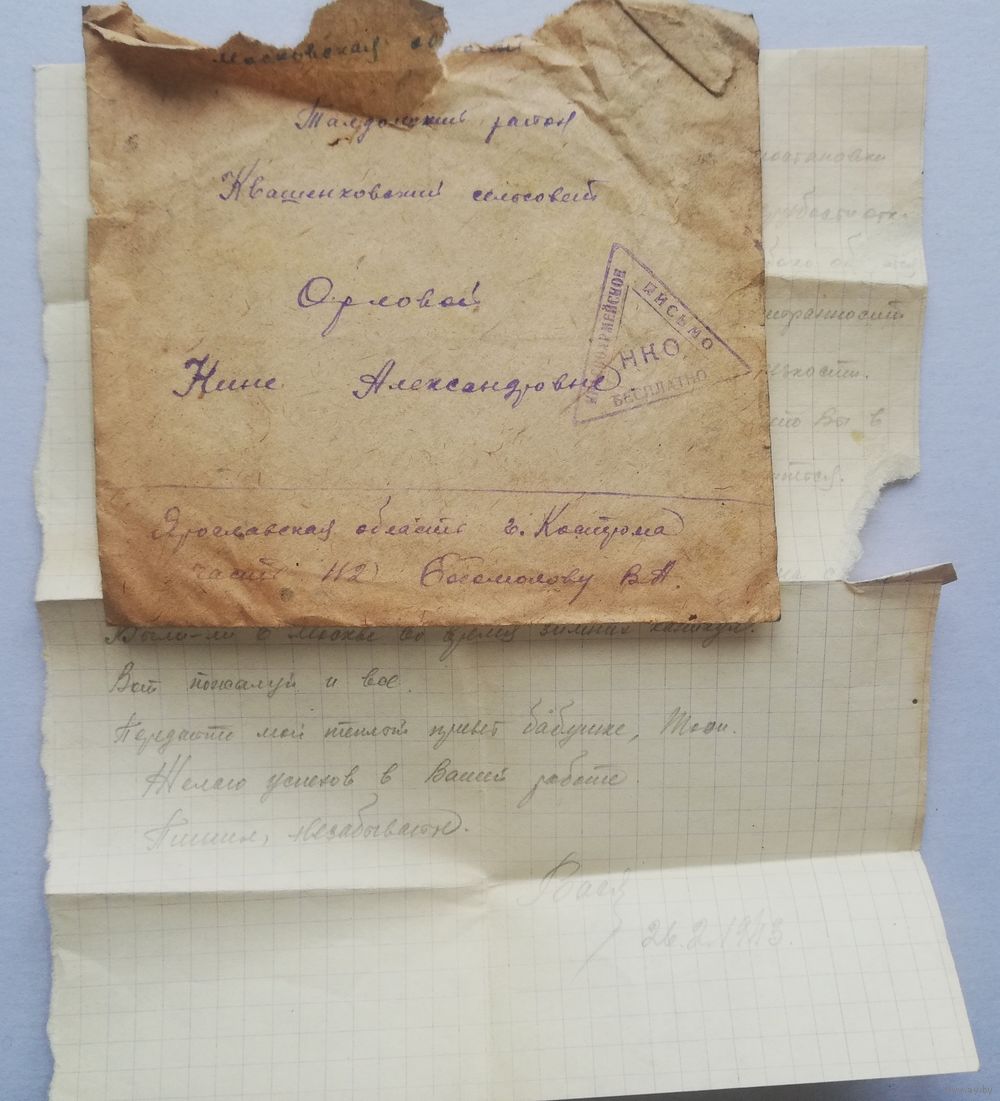 Московская область
Талдомский район
Квашенковский сельсовет
Орловой
Нине Александровне
КРАСНОАРМЕЙСКОЕ
ПИСЬМО
НКО
БЕСПЛАТНО
Ярославская область г. Кострома
часть 112 Богомолову В.А.
постановки
резкости.
что Вы в
Были-ли в Москве во время зимних каникул.
Вот пожалуй и все.
Передайте мой теплый привет бабушке, Тоси.
Желаю успехов в Вашей работе.
Пишите, незабывайте.
Вася
26.2.1943.